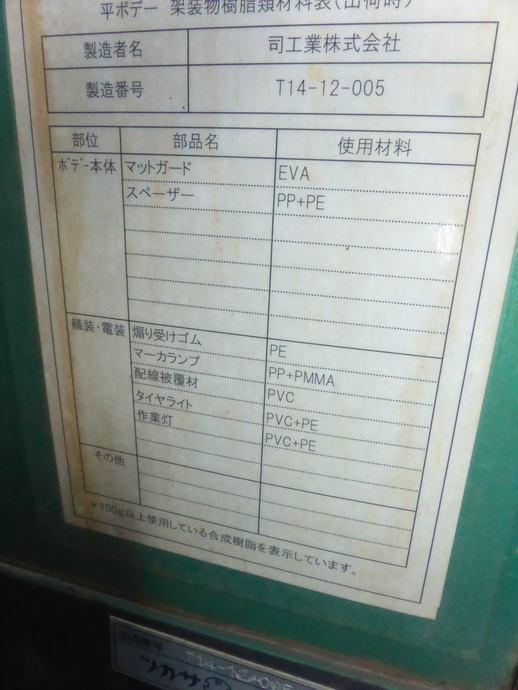 平ボデー 架装物樹脂類材料表(出荷時)
製造者名 司工業株式会社
製造番号 T14-12-005
部位 部品名 使用材料
ボデー本体 マットガード EVA
スペーサー PP+PE
艤装・電装 煽り受けゴム PE
マーカランプ PP+PMMA
配線被覆材 PVC
タイヤライト PVC+PE
作業灯 PVC+PE
その他
*100g以上使用している合成樹脂を表示しています。
製造番号 T14-12-005
ツカサ